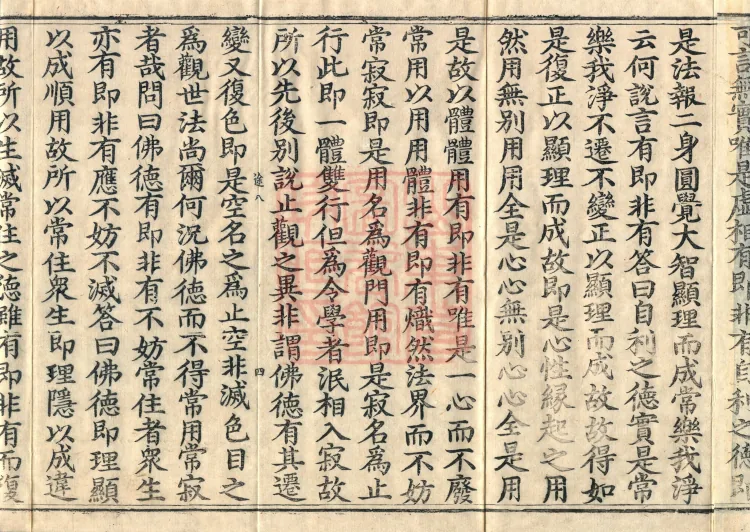 可言無實唯是虛相有即非有自利之德即
是法報二身圓覺大智顯理而成常樂我淨
云何說言有即非有答曰自利之德實是常
樂我淨不遷不變正以顯理而成故故得如
是復正以顯理而成故即是心性緣起之用
然用無別用用全是心心無別心心全是用
是故以體體用有即非有唯是一心而不廢
常用以用用體非有即有熾然法界而不妨
常寂寂即是用名為觀門用即是寂名為止
行此即一體雙行但為令學者泯相入寂故
所以先後別說止觀之異非謂佛德有其遷
途八
四
變又復色即是空名之為止空非滅色目之
為觀世法尚爾何況佛德而不得常用常寂
者哉問曰佛德有即非有不妨常住者眾生
亦有即非有應不妨不滅答曰佛德即理顯
以成順用故所以常住眾生即理隱以成違
用故所以生滅常住之德雖有即非有而復